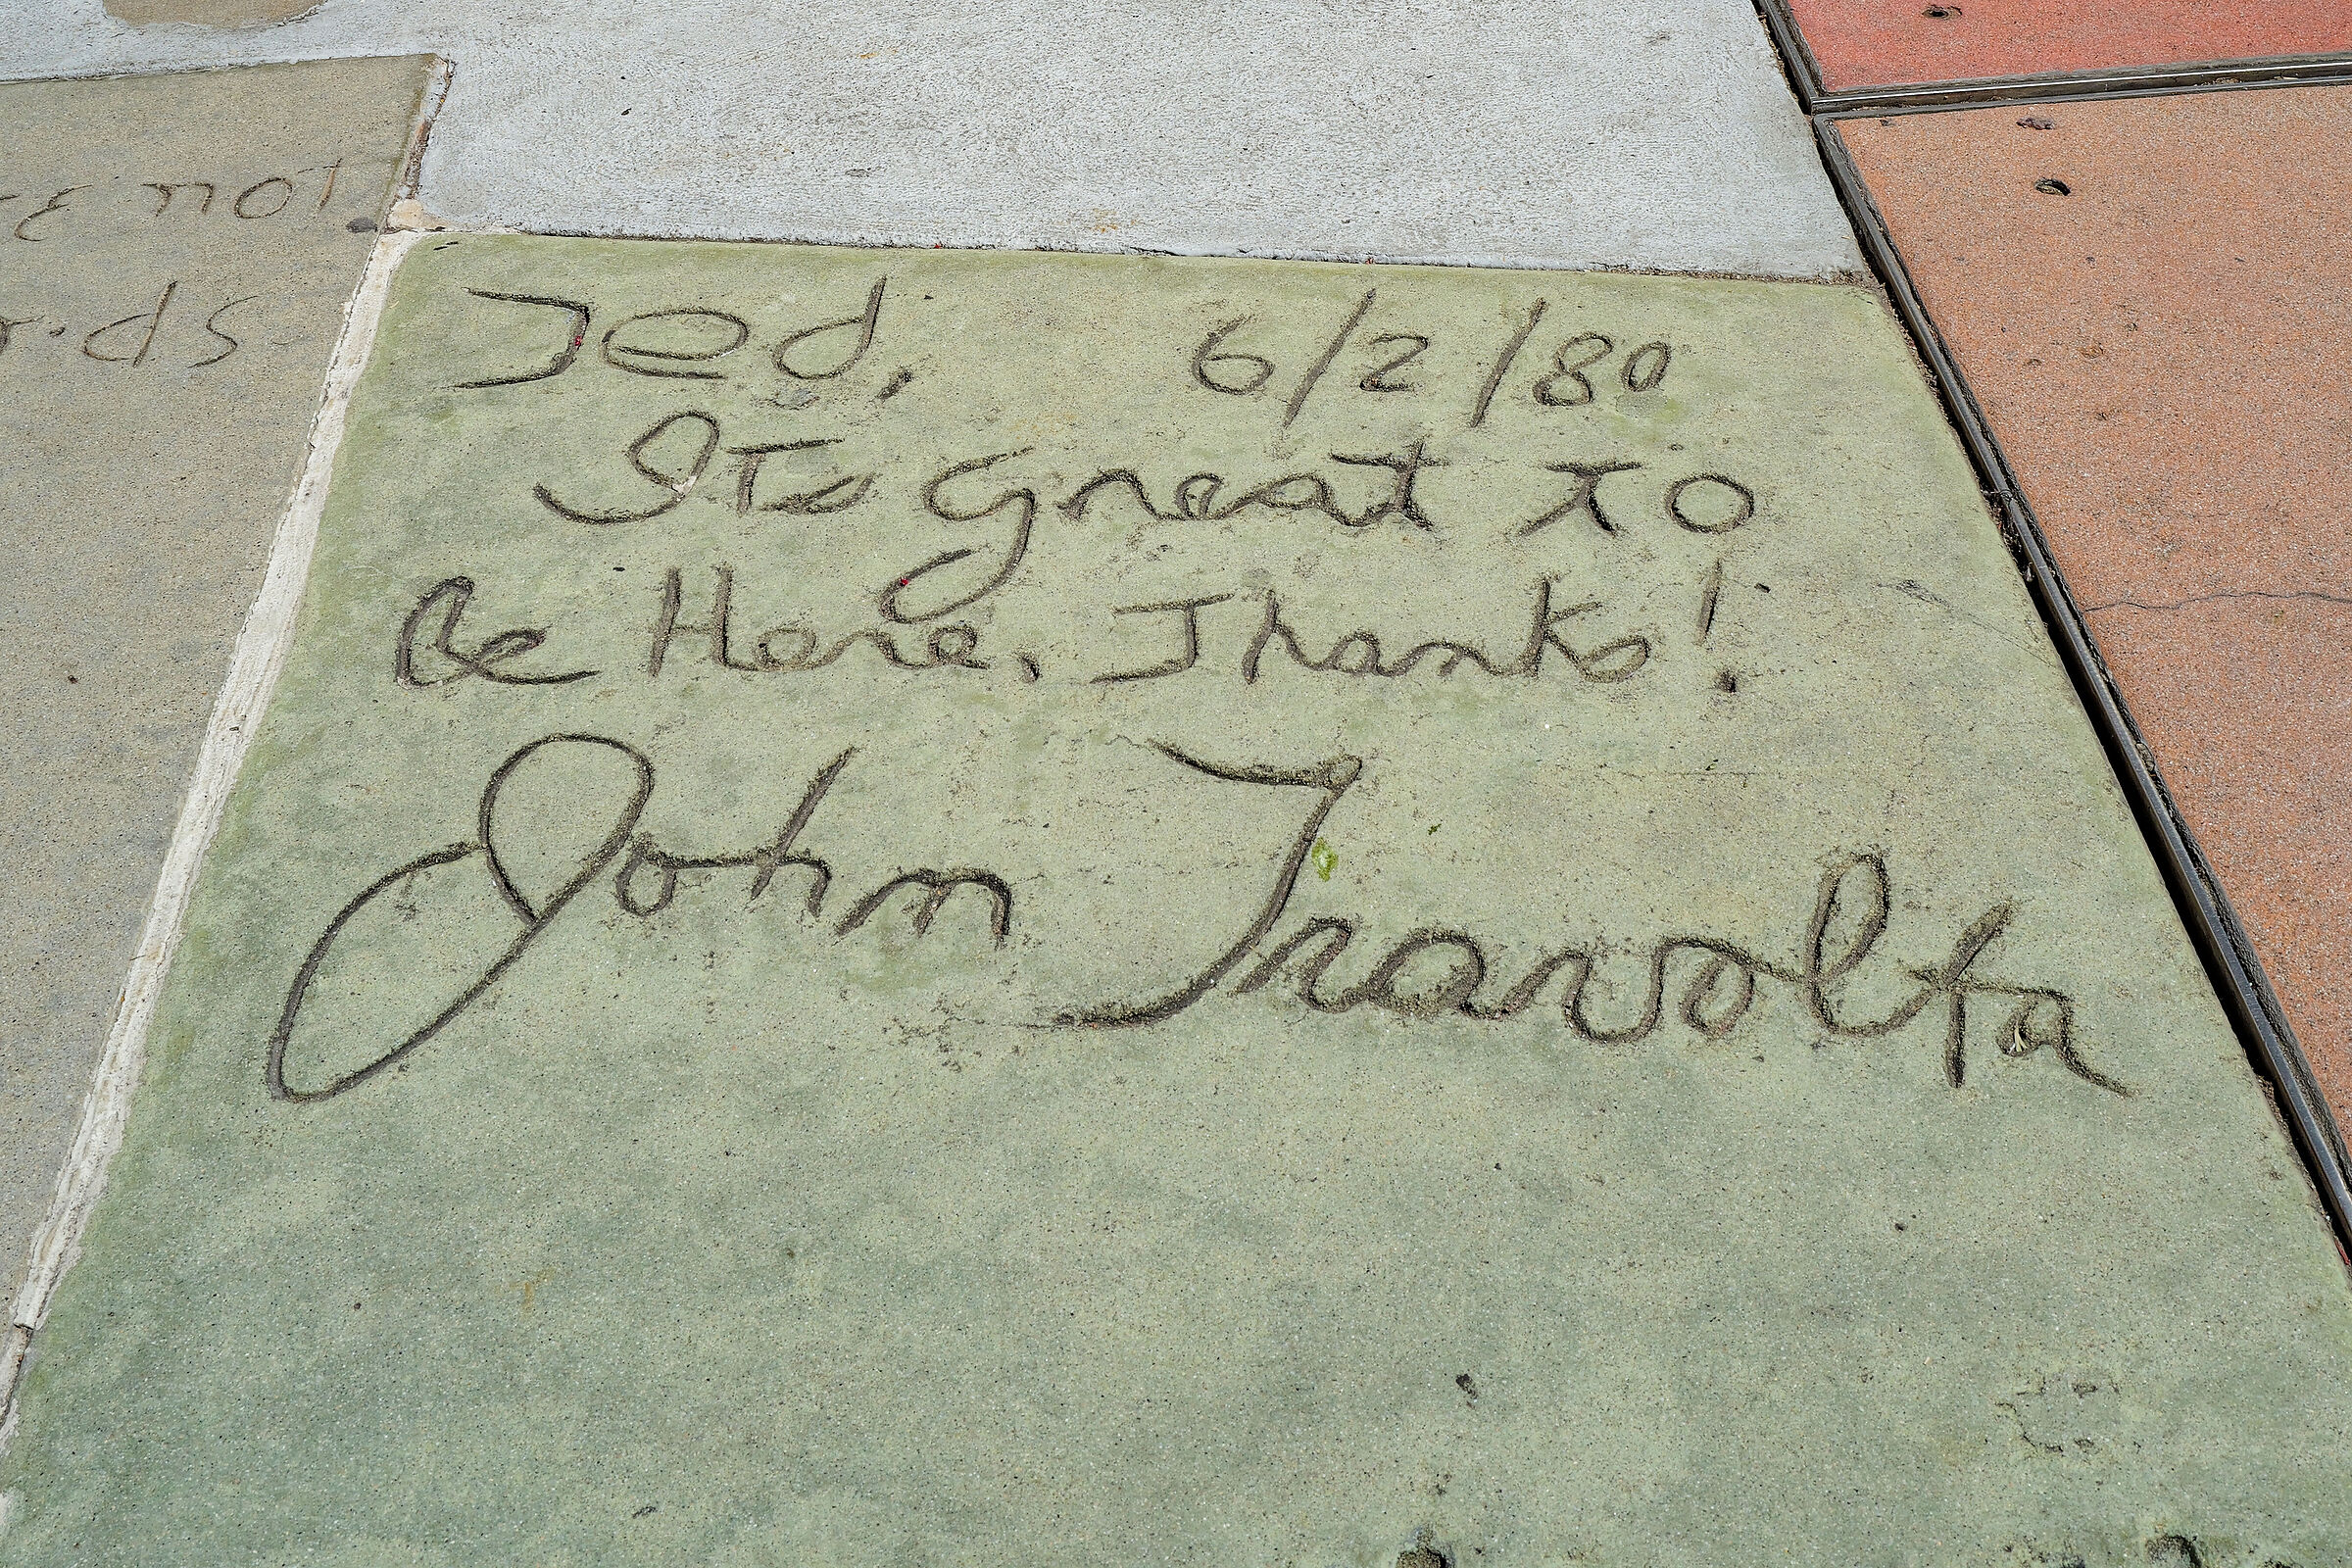 Ted, 6/2/80
Its great to
be Here, Thanks!
John Travolta
not